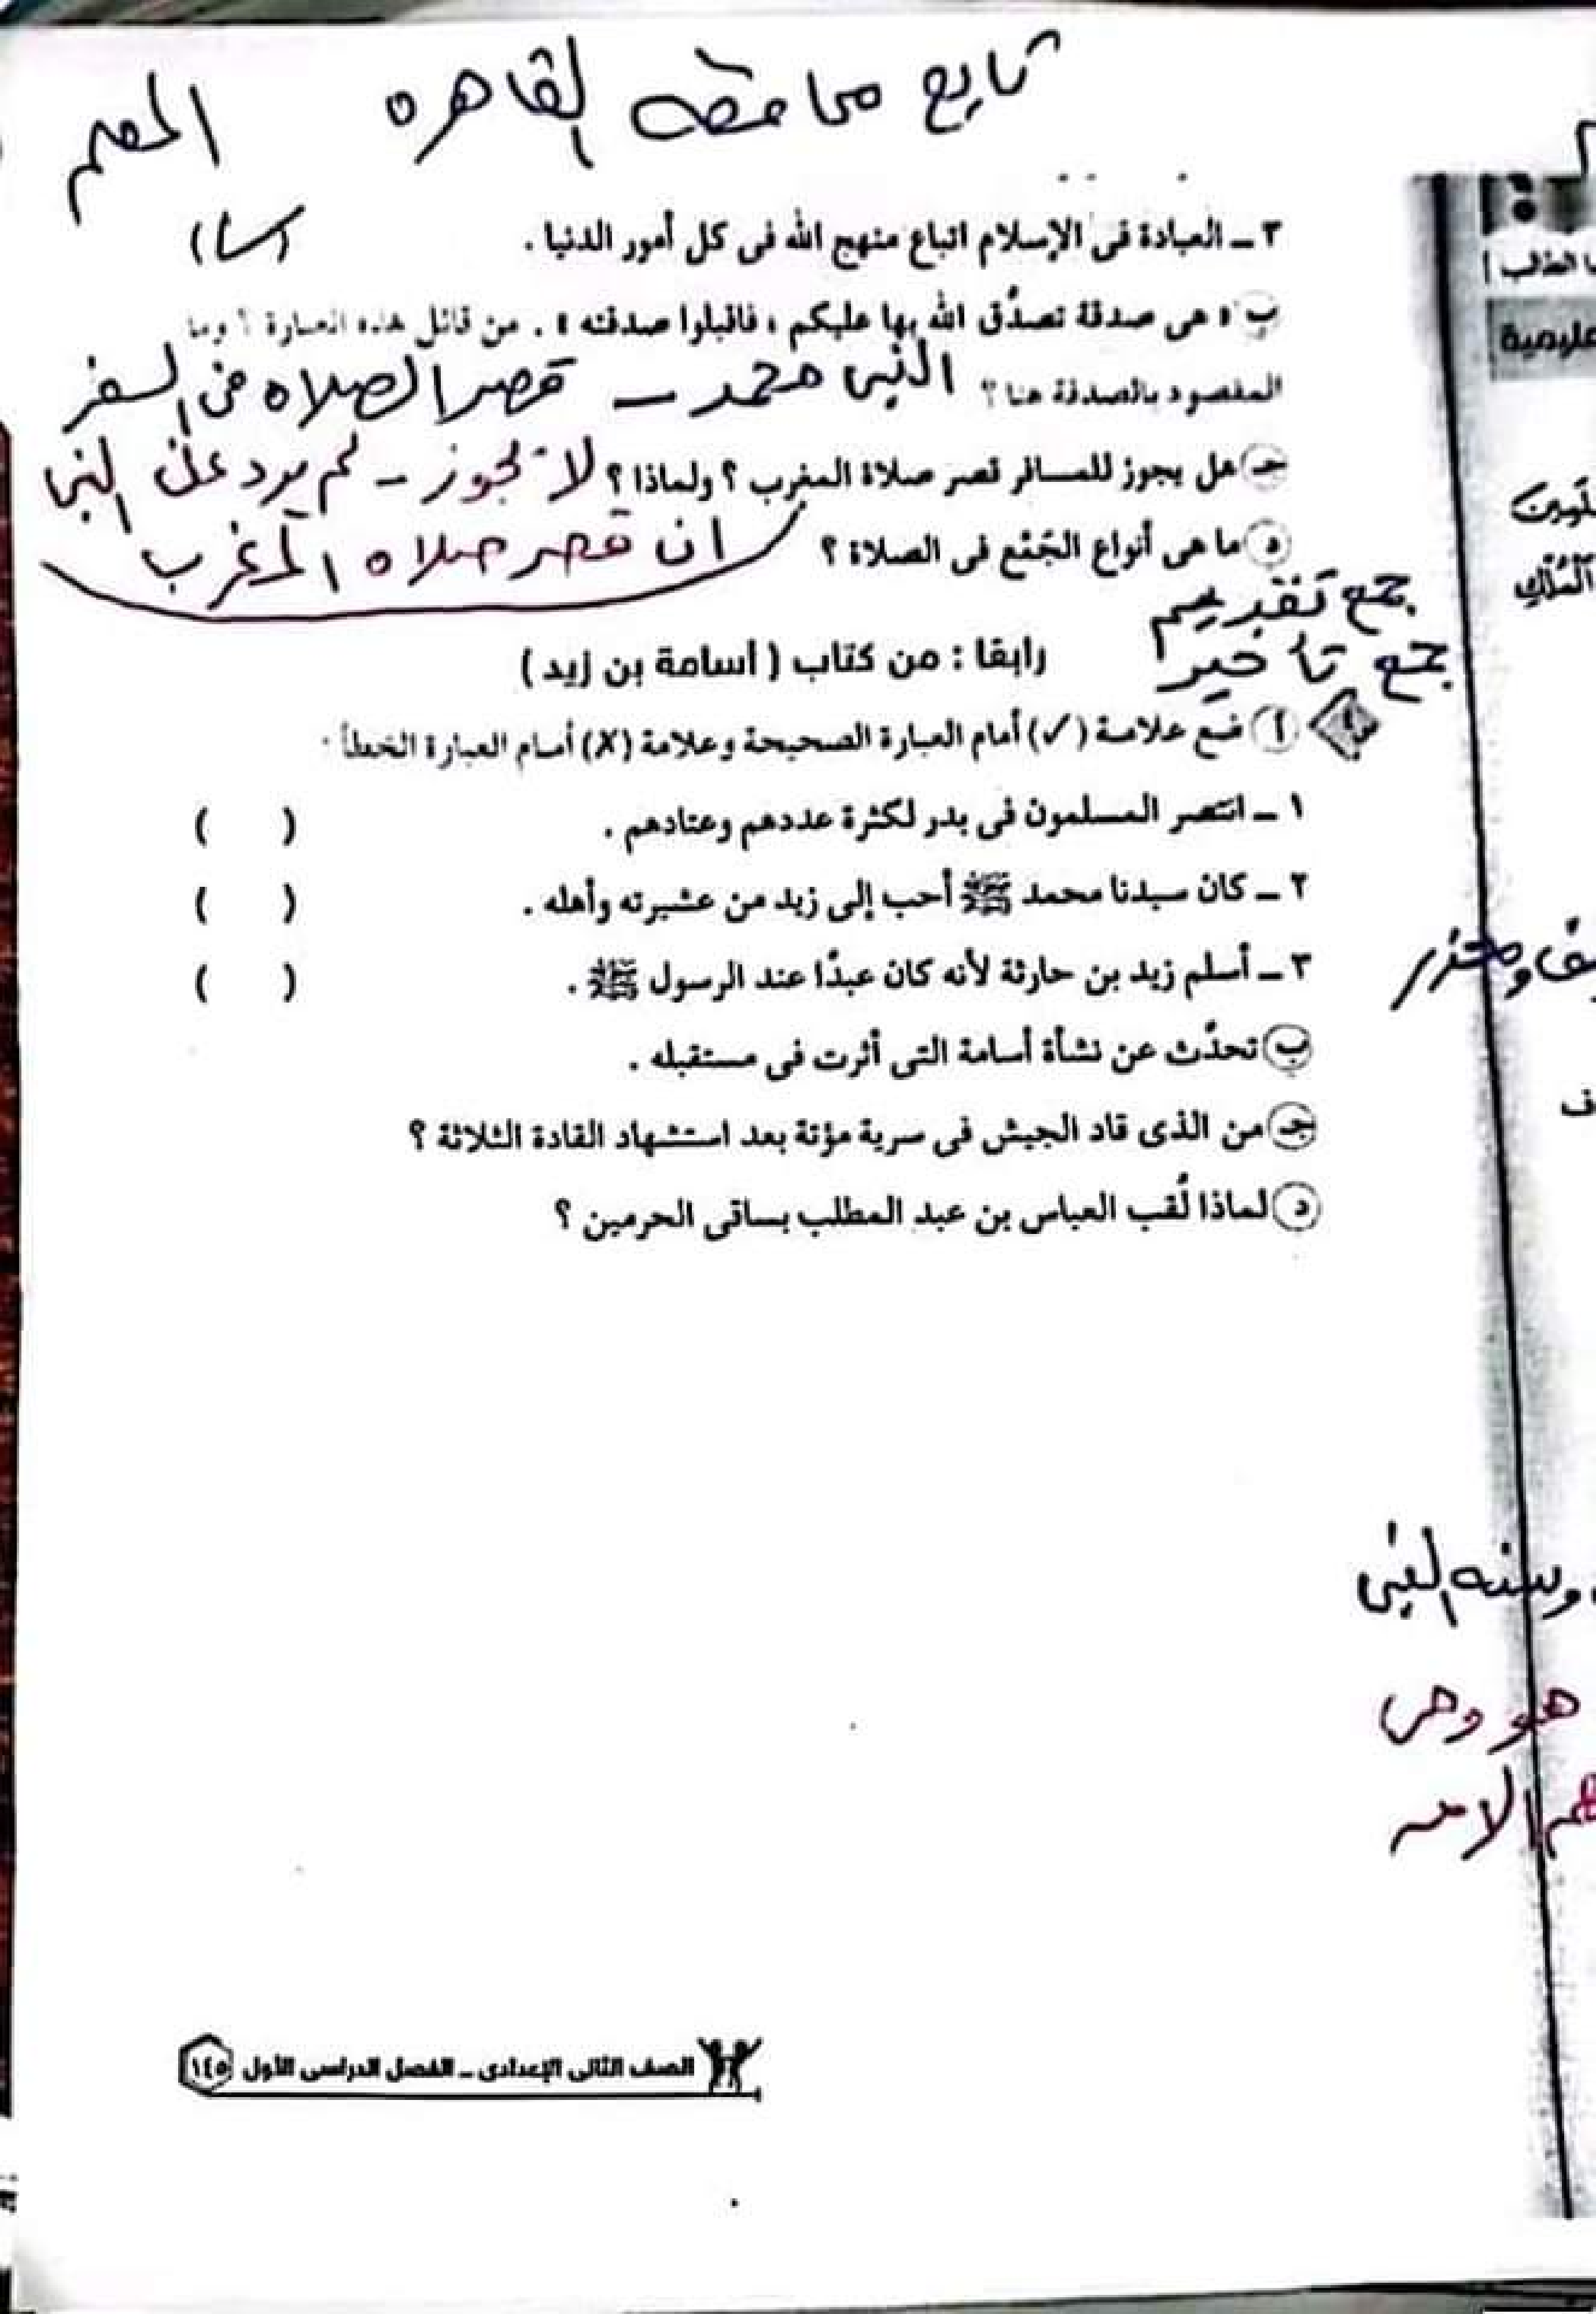 تابع محافظه القاهره
المعلم
٣ - العبادة فى الإسلام اتباع منهج الله فى كل أمور الدنيا .
ب « هى صدقة تصدَّق الله بها عليكم ، فاقبلوا صدقته » . من قائل هذه العبارة ؟ وما
المقصود بالصدقة هنا ؟ النبى محمد - قصر الصلاه فى السفر
جـ هل يجوز للمسافر قصر صلاة المغرب ؟ ولماذا ؟ لا يجوز - لم يرد عن النبى
ان قصر صلاه المغرب
د ما هى أنواع الجَمْع فى الصلاة ؟
جمع تقديم
جمع تأخير
رابعًا : من كتاب ( أسامة بن زيد )
٤ أ ضع علامة (✓) أمام العبارة الصحيحة وعلامة (X) أمام العبارة الخطأ .
١ - انتصر المسلمون فى بدر لكثرة عددهم وعتادهم . ( )
٢ - كان سيدنا محمد ﷺ أحب إلى زيد من عشيرته وأهله . ( )
٣ - أسلم زيد بن حارثة لأنه كان عبدًا عند الرسول ﷺ . ( )
ب تحدَّث عن نشأة أسامة التى أثرت فى مستقبله .
جـ من الذى قاد الجيش فى سرية مؤتة بعد استشهاد القادة الثلاثة ؟
د لماذا لُقب العباس بن عبد المطلب بساقى الحرمين ؟
وسنه النبى
هو وهى
الصف الثانى الإعدادى - الفصل الدراسى الأول ١٤٥